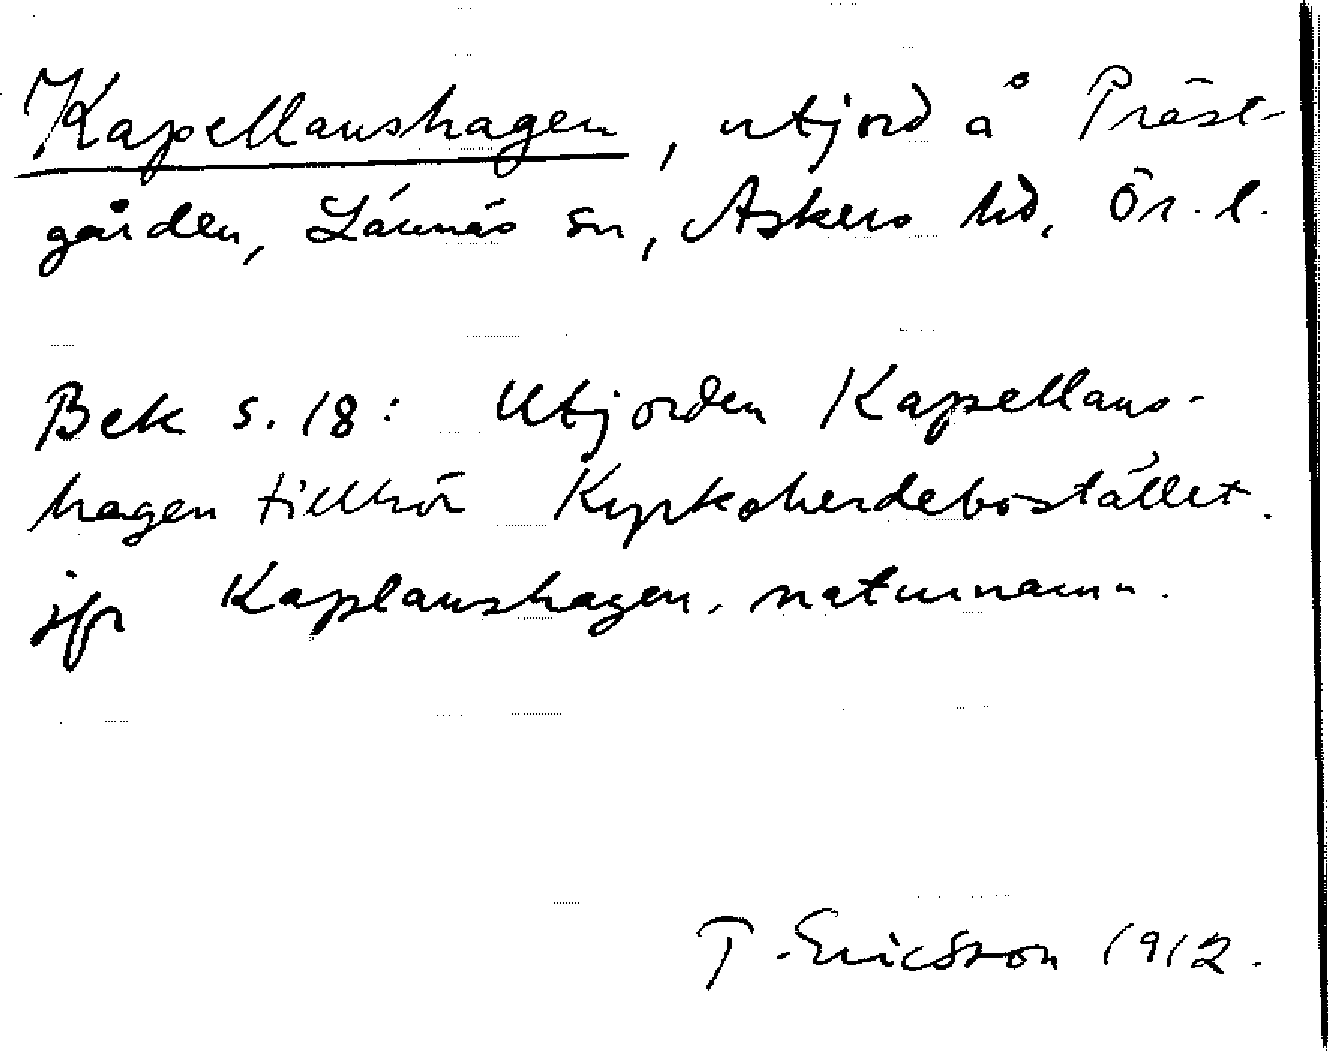 Kapellanshagen, utjord å Präst-
gården, Lännäs sn, Askers hd, Ör. l.
Bek s. 18: Utjorden Kapellans-
hagen tillhör Kyrkoherdebostället.
jfr Kaplanshagen, naturnamn.
T. Ericsson 1912.